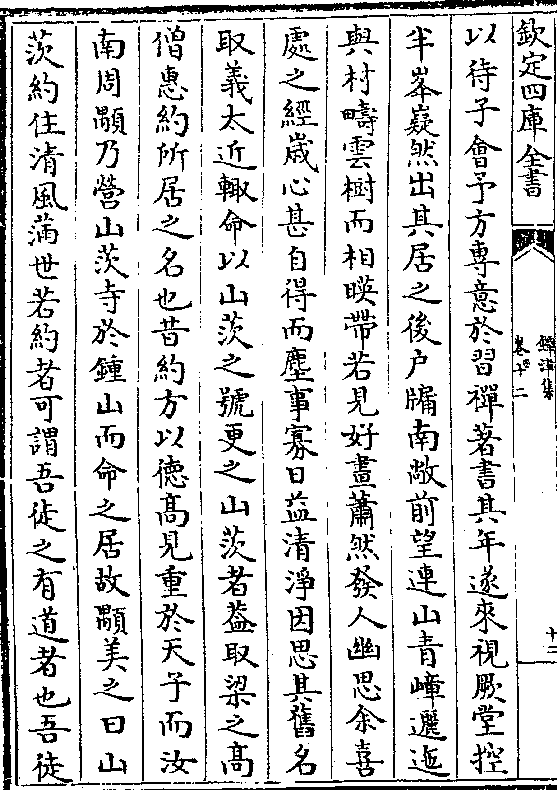 欽定四庫全書
鐔津集
卷十二
十二
以待子會予方專意於習禪著書其年遂來視厥堂控
半峯嶷然出其居之後户牖南敞前望連山青嶂邐迤
與村疇雲樹而相暎帶若見好畫蕭然發人幽思余喜
處之經嵗心甚自得而塵事寡日益清淨因思其舊名
取義太近輙命以山茨之號更之山茨者葢取梁之髙
僧惠約所居之名也昔約方以徳髙見重於天子而汝
南周顒乃營山茨寺於鍾山而命之居故顒美之曰山
茨約住清風滿世若約者可謂吾徒之有道者也吾徒